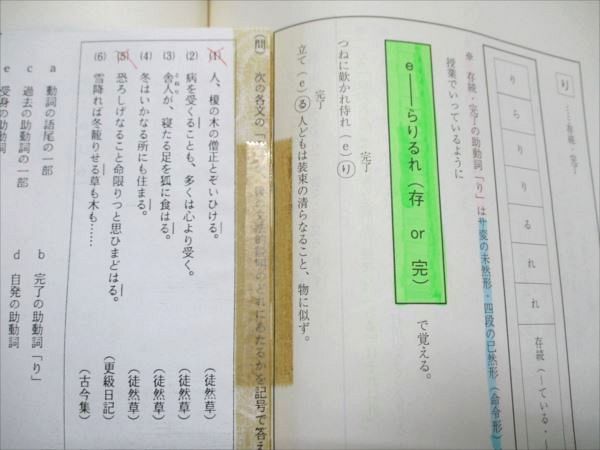 り ……存続・完了
り
ら
り
り
る
れ
れ
存続（～ている・
※ 存続・完了の助動詞「り」はサ変の未然形・四段の已然形（命令形）
授業でいっているように
e――らりるれ（存 or 完）
で覚える。
完了
つねに歎かれ侍れ（e）り
完了
立て（e）る人どもは装束の清らなること、物に似ず。
(問) 次の各文の「 後の文法的説明のどれにあたるかを記号で答え
(1) 人、榎の木の僧正とぞいひける。（徒然草）
(2) 病を受くることも、多くは心より受く。（徒然草）
(3) 舎人が、寝たる足を狐に食はる。（徒然草）
とねり
(4) 冬はいかなる所にも住まる。（徒然草）
(5) 恐ろしげなること命限りつと思ひまどはる。（更級日記）
(6) 雪降れば冬籠りせる草も木も……（古今集）
a 動詞の語尾の一部
b 完了の助動詞「り」
c 過去の助動詞の一部
d 自発の助動詞
e 受身の助動詞